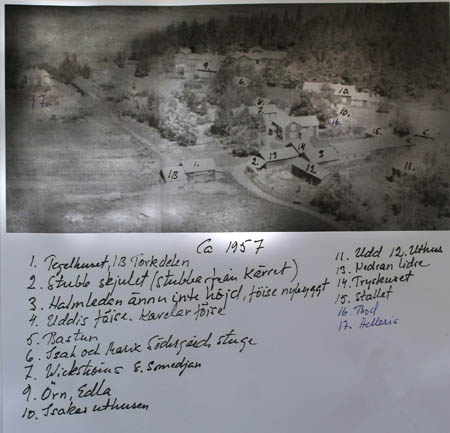 Ca 1957
1. Tegelhuset, 1B Torkdelen
2. Stubb skjulet (stubbar från Kärret)
3. Halmladen ännu inte höjd, föise nybyggt
4. Uddis föise. Kavelar föise
5. Bastun
6. Isak och Maria Södergårds stuga
7. Wickströms 8. Smedjan
9. Örn, Edla
10. Isakas uthusen
11. Udd 12. Uthus
13. Nedran lidre
14. Tryskhuset
15. Stallet
16. Bod
17. Hellaris